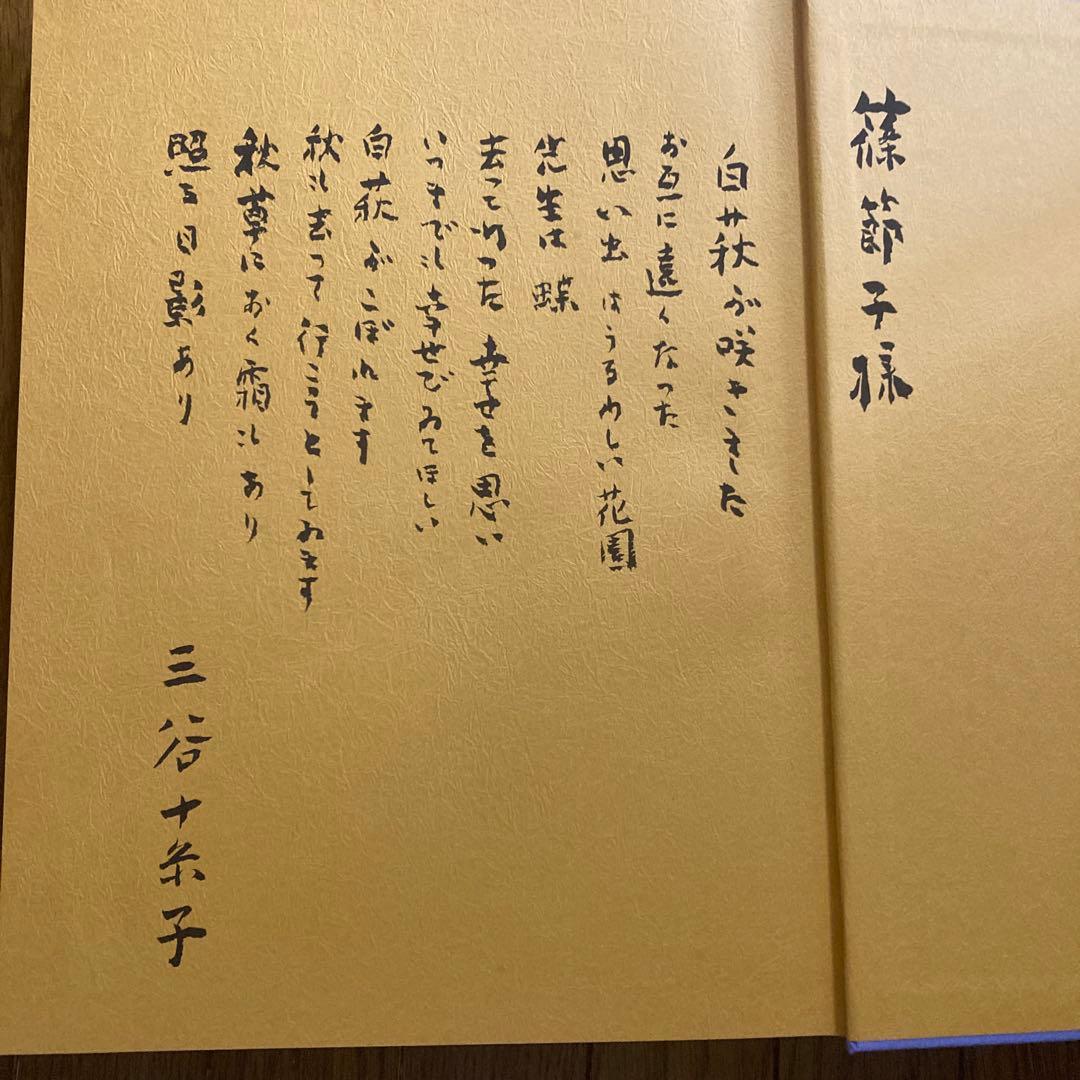 篠節子様
白萩が咲きました
お互に遠くなった
思い出はうるわしい花園
先生は蝶
去って行った幸せを思い
いつまでも幸せでゐてほしい
白萩がこぼれます
秋も去って行こうとしてゐます
秋草におく霜もあり
照る日影あり
三谷十糸子